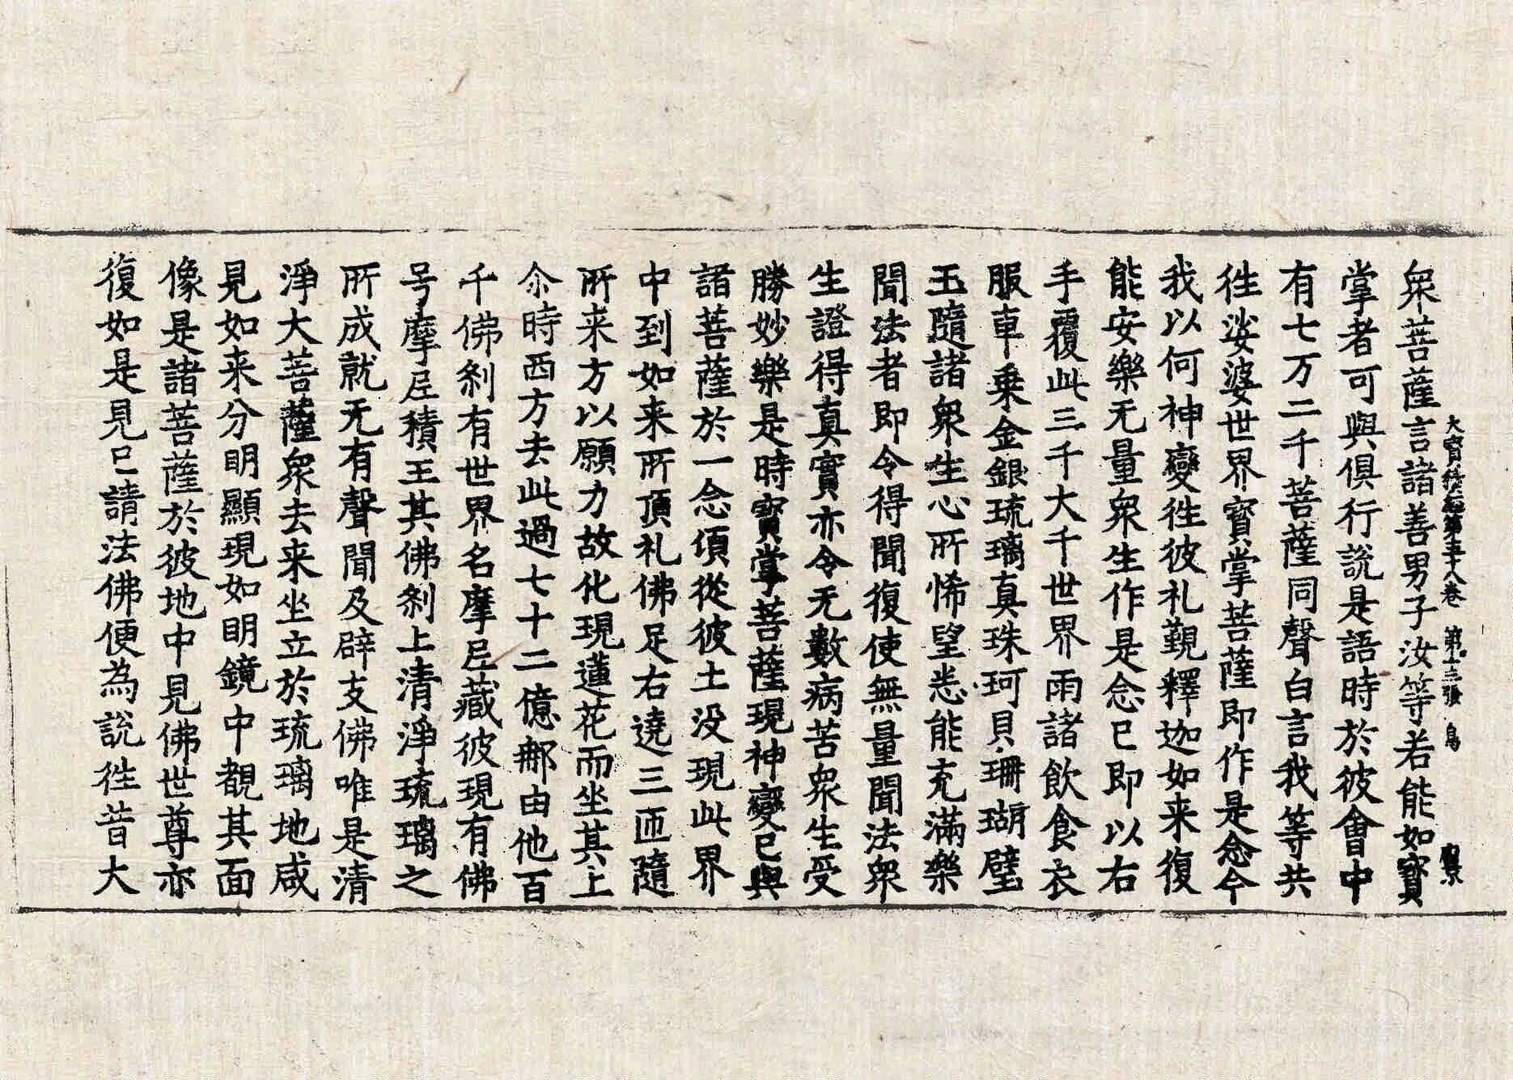 大寶積經第五十八卷 第十三張 鳥
衆菩薩言諸善男子汝等若能如寳
掌者可與俱行說是語時於彼會中
有七万二千菩薩同聲白言我等共
往娑婆世界寳掌菩薩即作是念今
我以何神變往彼礼覲釋迦如来復
能安樂无量衆生作是念已即以右
手覆此三千大千世界雨諸飲食衣
服車乗金銀琉璃真珠珂貝珊瑚璧
玉隨諸衆生心所悕望悉能充滿樂
聞法者即令得聞復使無量聞法衆
生證得真實亦令无數病苦衆生受
勝妙樂是時寳掌菩薩現神變已與
諸菩薩於一念頃從彼土没現此界
中到如来所頂礼佛足右遶三匝隨
所来方以願力故化現蓮花而坐其上
尒時西方去此過七十二億那由他百
千佛刹有世界名摩尼藏彼現有佛
号摩尼積王其佛刹上清淨琉璃之
所成就无有聲聞及辟支佛唯是清
淨大菩薩衆去来坐立於琉璃地咸
見如来分明顯現如明鏡中覩其面
像是諸菩薩於彼地中見佛世尊亦
復如是見已請法佛便為說往昔大